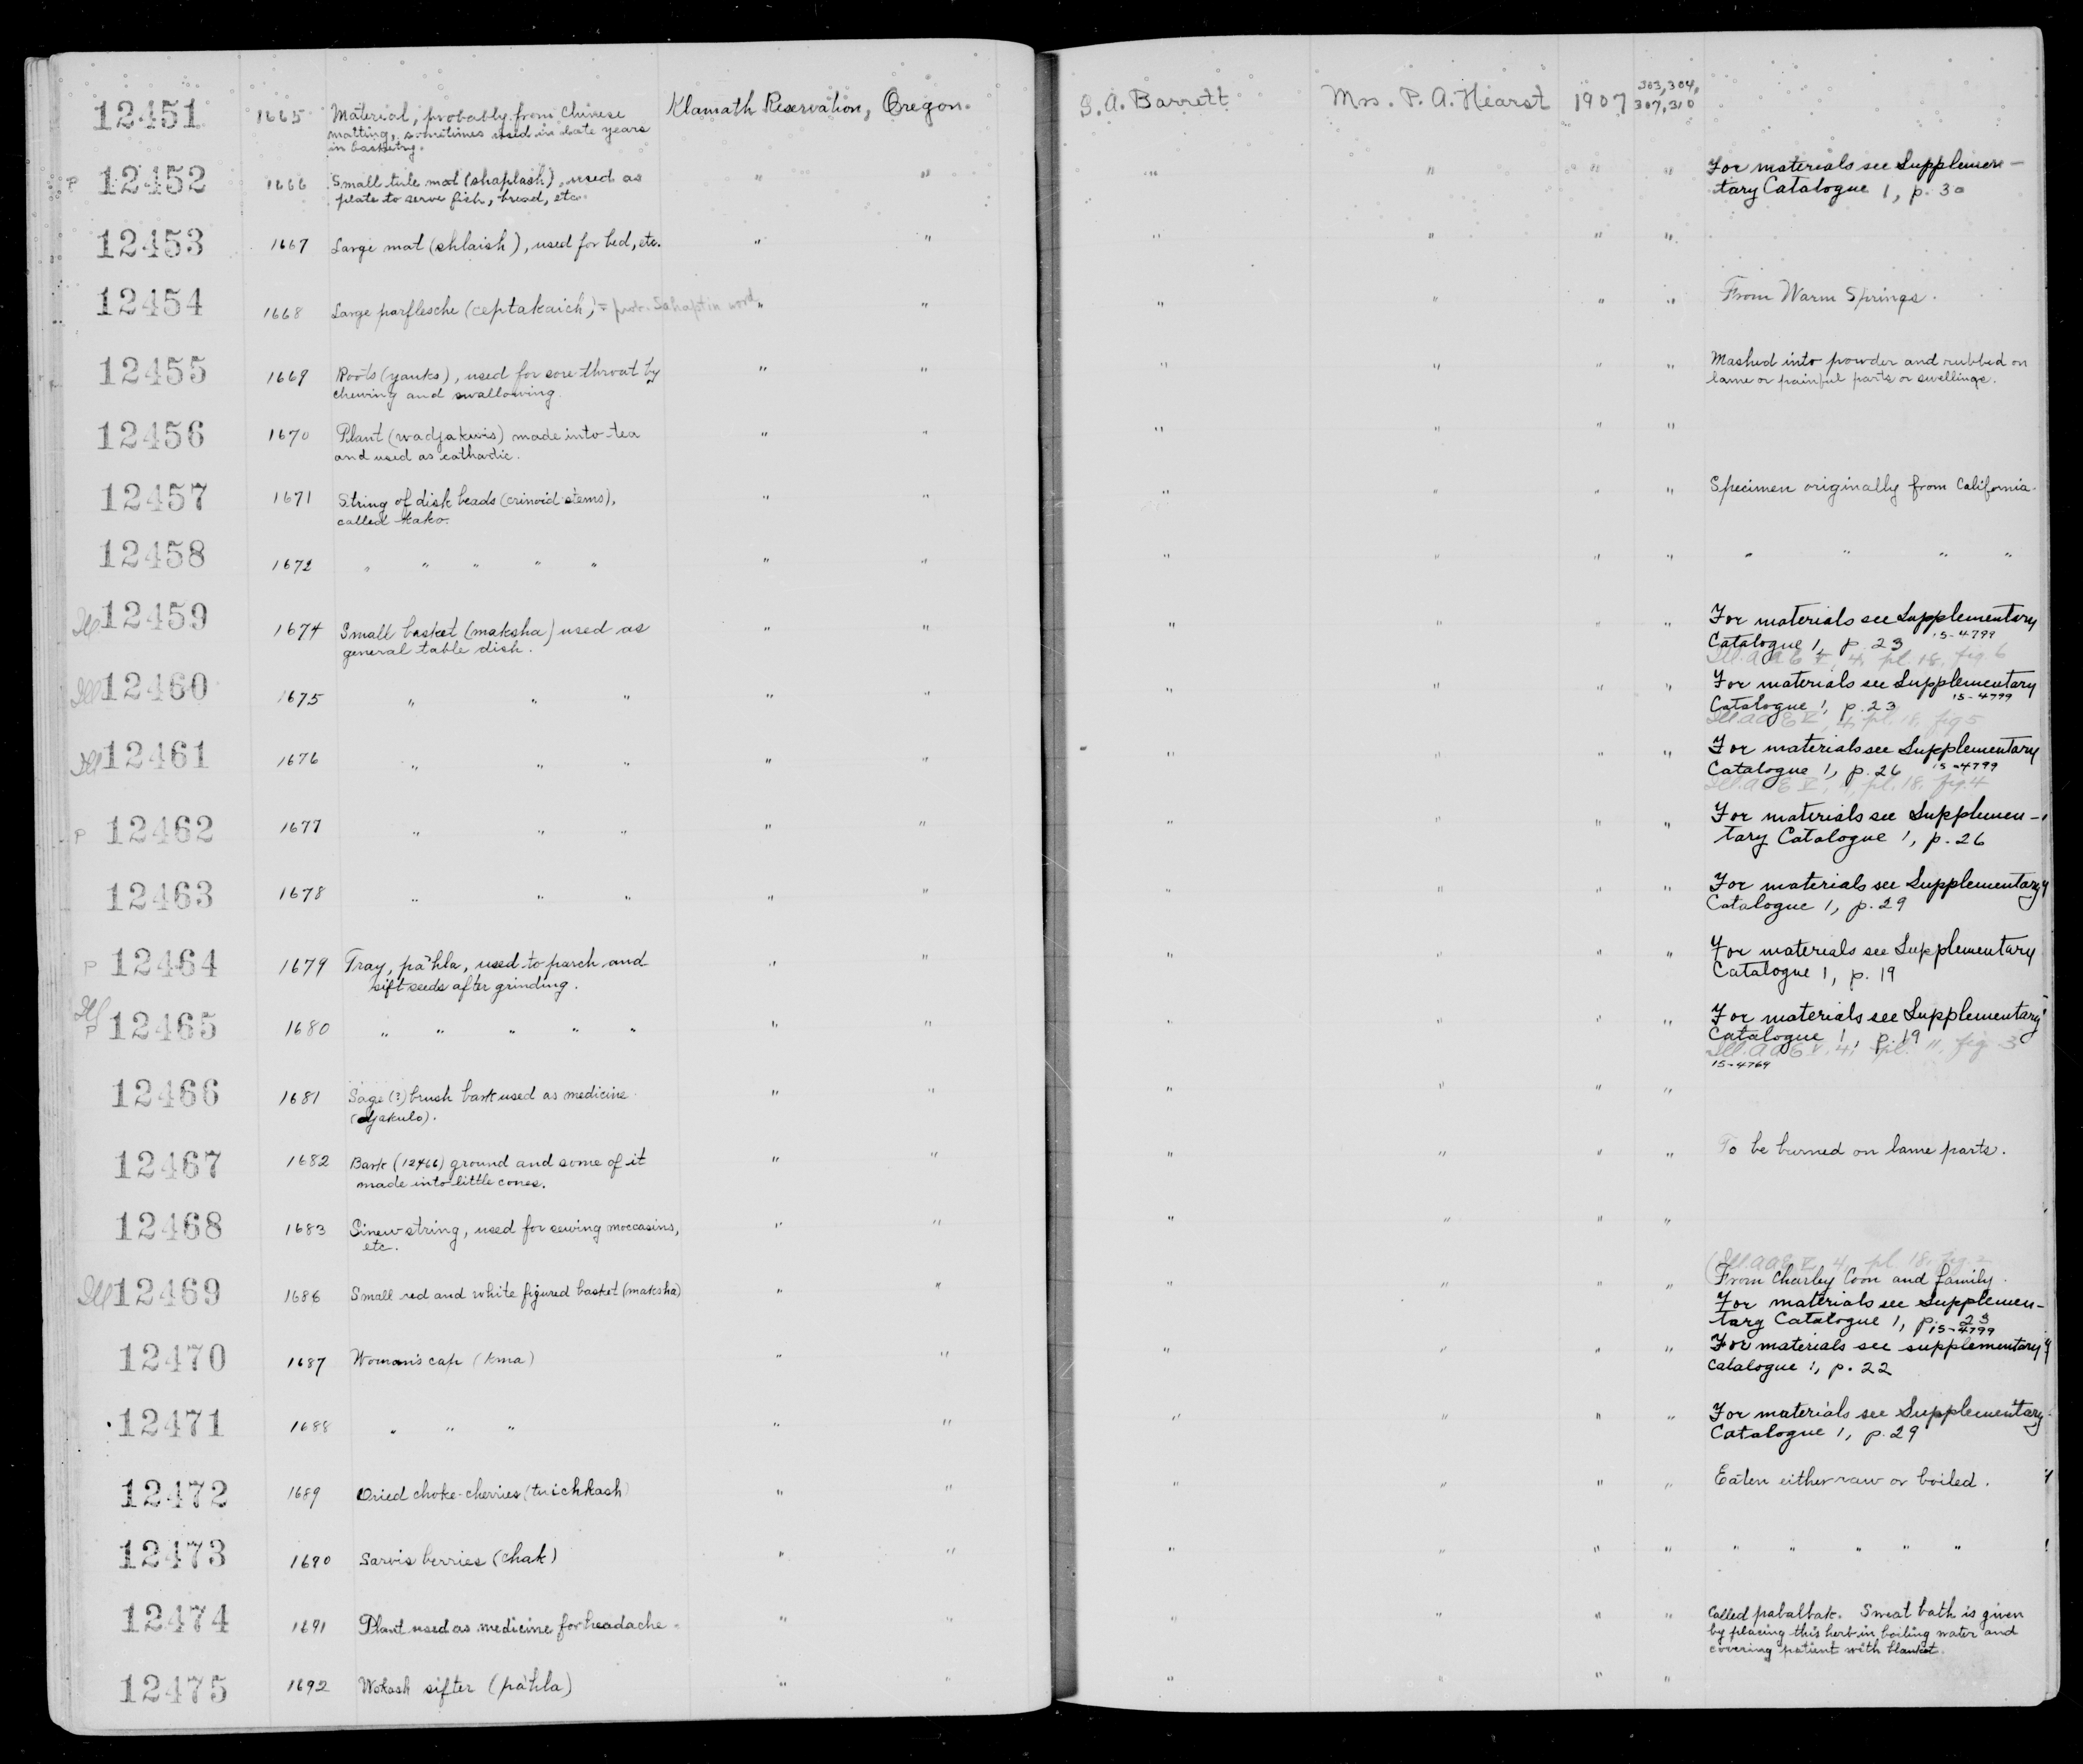 12451 1665 Material, probably from Chinese Klamath Reservation, Oregon. S. A. Barrett Mrs. P. A. Hearst 1907 303, 304,
matting, sometimes used in late years 307, 310
in basketry.
P 12452 1666 Small tule mat (shaplash), used as " " " " " " For materials see Supplemen-
plate to serve fish, bread, etc. tary Catalogue 1, p. 30
12453 1667 Large mat (shlaish), used for bed, etc. " " " " " "
12454 1668 Large parflesche (ceptakaich) = prob. Sahaptin word " " " " " " From Warm Springs.
12455 1669 Roots (yanks), used for sore throat by " " " " " " Mashed into powder and rubbed on
chewing and swallowing. lame or painful parts or swellings.
12456 1670 Plant (wadjakwis) made into tea " " " " " "
and used as cathartic.
12457 1671 String of disk beads (crinoid stems), " " " " " " Specimen originally from California.
called kako.
12458 1672 " " " " " " " " " " " " " " "
Ill 12459 1674 Small basket (maksha) used as " " " " " " For materials see Supplementary
general table dish. Catalogue 1, p. 23 15-4799
Ill. AAE V, 4, pl. 18, fig 6
Ill 12460 1675 " " " " " " " " " For materials see Supplementary
Catalogue 1, p. 23 15-4799
Ill AAE V, 4, pl. 18, fig 5
Ill 12461 1676 " " " " " " " " " For materials see Supplementary
Catalogue 1, p. 26 15-4799
Ill. AAE V, 4, pl. 18, fig. 4
P 12462 1677 " " " " " " " " " For materials see Supplemen-
tary Catalogue 1, p. 26
12463 1678 " " " " " " " " " For materials see Supplementary
Catalogue 1, p. 29
P 12464 1679 Tray, pa'hla, used to parch and " " " " " " For materials see Supplementary
sift seeds after grinding. Catalogue 1, p. 19
Ill P 12465 1680 " " " " " " " " " " " For materials see Supplementary
Catalogue 1, p. 19
Ill. AAE V, 4, pl. 11, fig. 3
15-4769
12466 1681 Sage (?) brush bark used as medicine " " " " " "
(djakulo).
12467 1682 Bark (12466) ground and some of it " " " " " " To be burned on lame parts.
made into little cones.
12468 1683 Sinew string, used for sewing moccasins, " " " " " "
etc.
(Ill. AAE V, 4, pl. 18, fig. 2
Ill 12469 1686 Small red and white figured basket (maksha) " " " " " " From Charley Coon and family.
For materials see Supplemen-
tary Catalogue 1, p. 23
15-4799
12470 1687 Woman's cap (kma) " " " " " " For materials see supplementary
Catalogue 1, p. 22
12471 1688 " " " " " " " " " For materials see Supplementary
Catalogue 1, p. 29
12472 1689 Dried choke-cherries (twichkash) " " " " " " Eaten either raw or boiled.
12473 1690 Sarvis berries (chak) " " " " " " " " " " "
12474 1691 Plant used as medicine for headache. " " " " " " Called pabalbak. Sweat bath is given
by placing this herb in boiling water and
covering patient with blanket.
12475 1692 Wokash sifter (pa'hla) " " " " " "